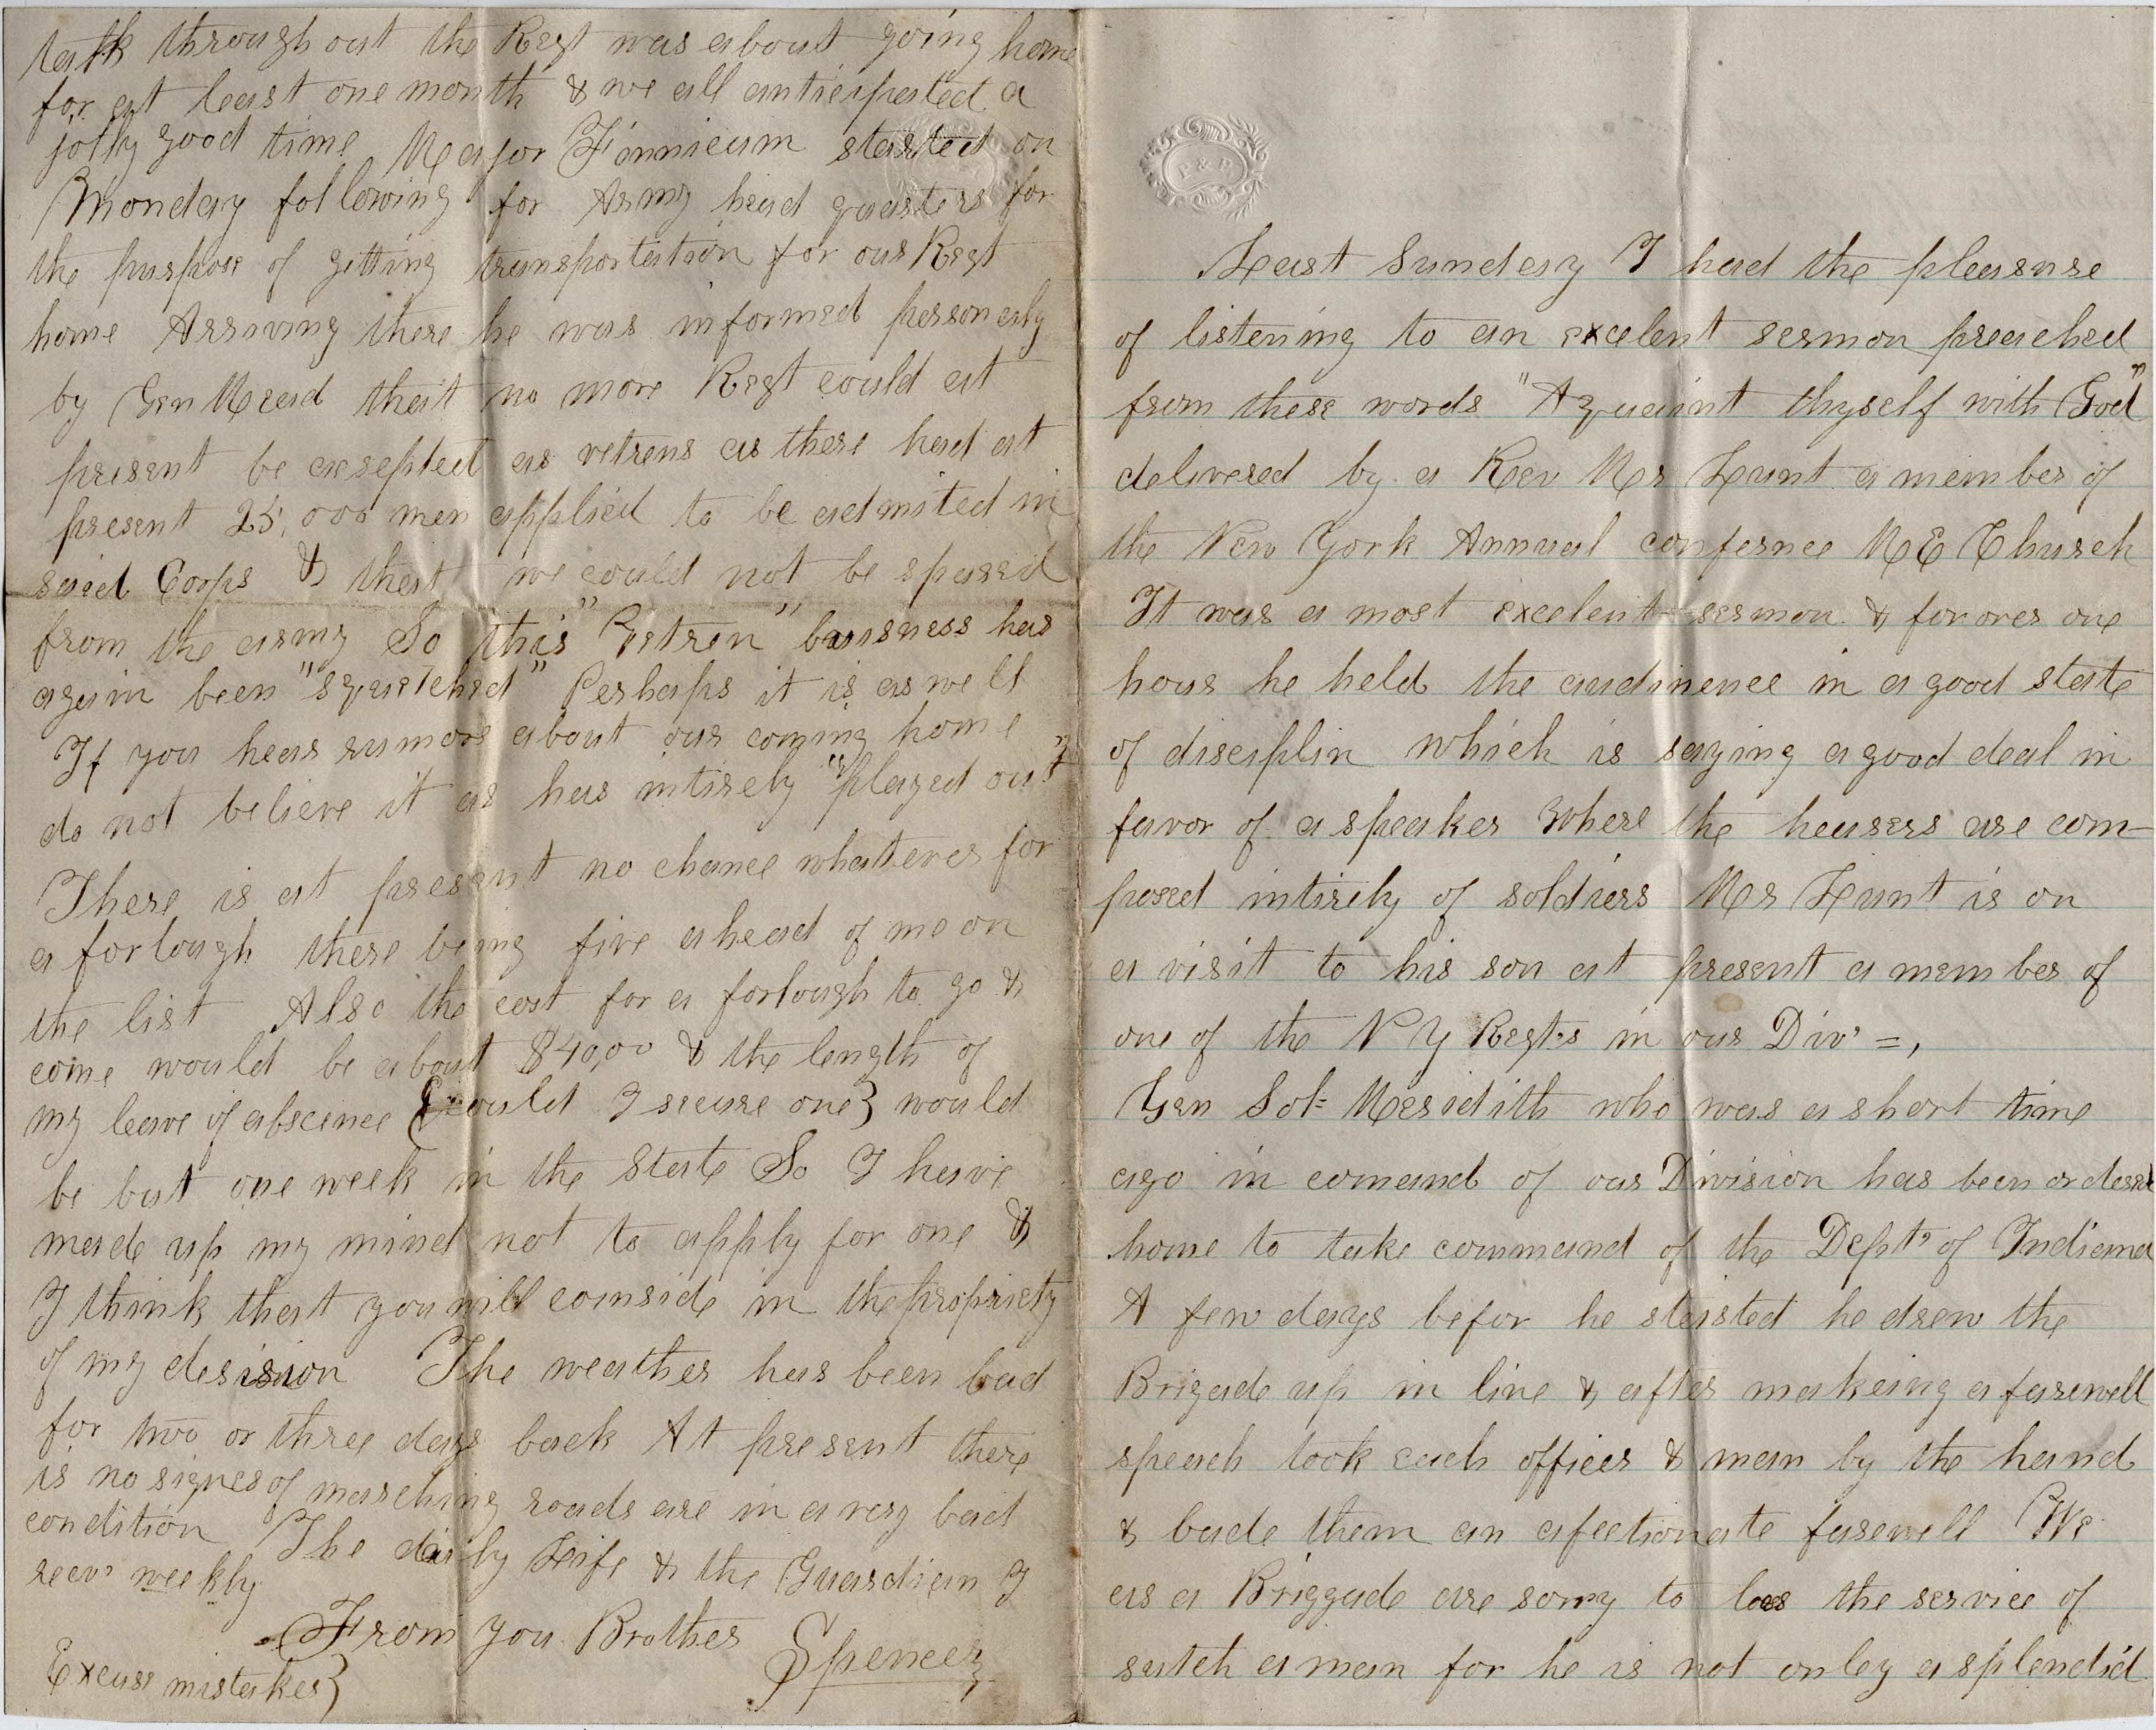 talk throughout the Regt was about going home
for at least one month & we all anticipated a
jolly good time Major Finnicum started on
Monday following for Army head quarters for
the purpose of getting transportation for our Regt
home Arriving there he was informed personaly
by Gen Mead that no more Regt could at
present be axsepted as vetrens as there had at
present 25,000 men applied to be admited in
said Corps & that we could not be spared
from the army So this "Vetren" buisness has
again been "squelched" Perhaps it is as well
If you hear rumors about our coming home
do not believe it as has intirely "played out"
There is at present no chance whatever for
a forlough there being five ahead of me on
the list Also the cost for a forlough to go &
come would be about $40,00 & the length of
my leave of abscence {could I secure one} would
be but one week in the State So I have
made up my mind not to apply for one &
I think that you will coinside in the propriety
of my desision The weather has been bad
for two or three days back At present there
is no signes of marching roads are in a very bad
condition The daily Life & the Guardian I
recv' weekly
From you Brother
Spencer
Excuse mistakes}
Last Sunday I had the pleasure
of listening to an excelent sermon preached
from these words "Aquaint thyself with God"
delivered by a Rev Mr Lunt a member of
the New York Annual confernce M E Church
It was a most excelent sermon & for over one
hour he held the audinence in a good state
of disciplin which is saying a good deal in
favor of a speaker where the hearers are com-
posed intirely of soldiers Mr Lunt is on
a visit to his son at present a member of
one of the N Y Regt.s in our Div' =,
Gen Sol= Meridith who was a short time
ago in comand of our Division has been ordered
home to take command of the Dept' of Indiana
A few days befor he started he drew the
Brigade up in line & after makeing a farewell
speach took each officer & man by the hand
& bade them an afectionate farewell We
as a Briggade are sorry to loes the service of
sutch a man for he is not onley a splendid